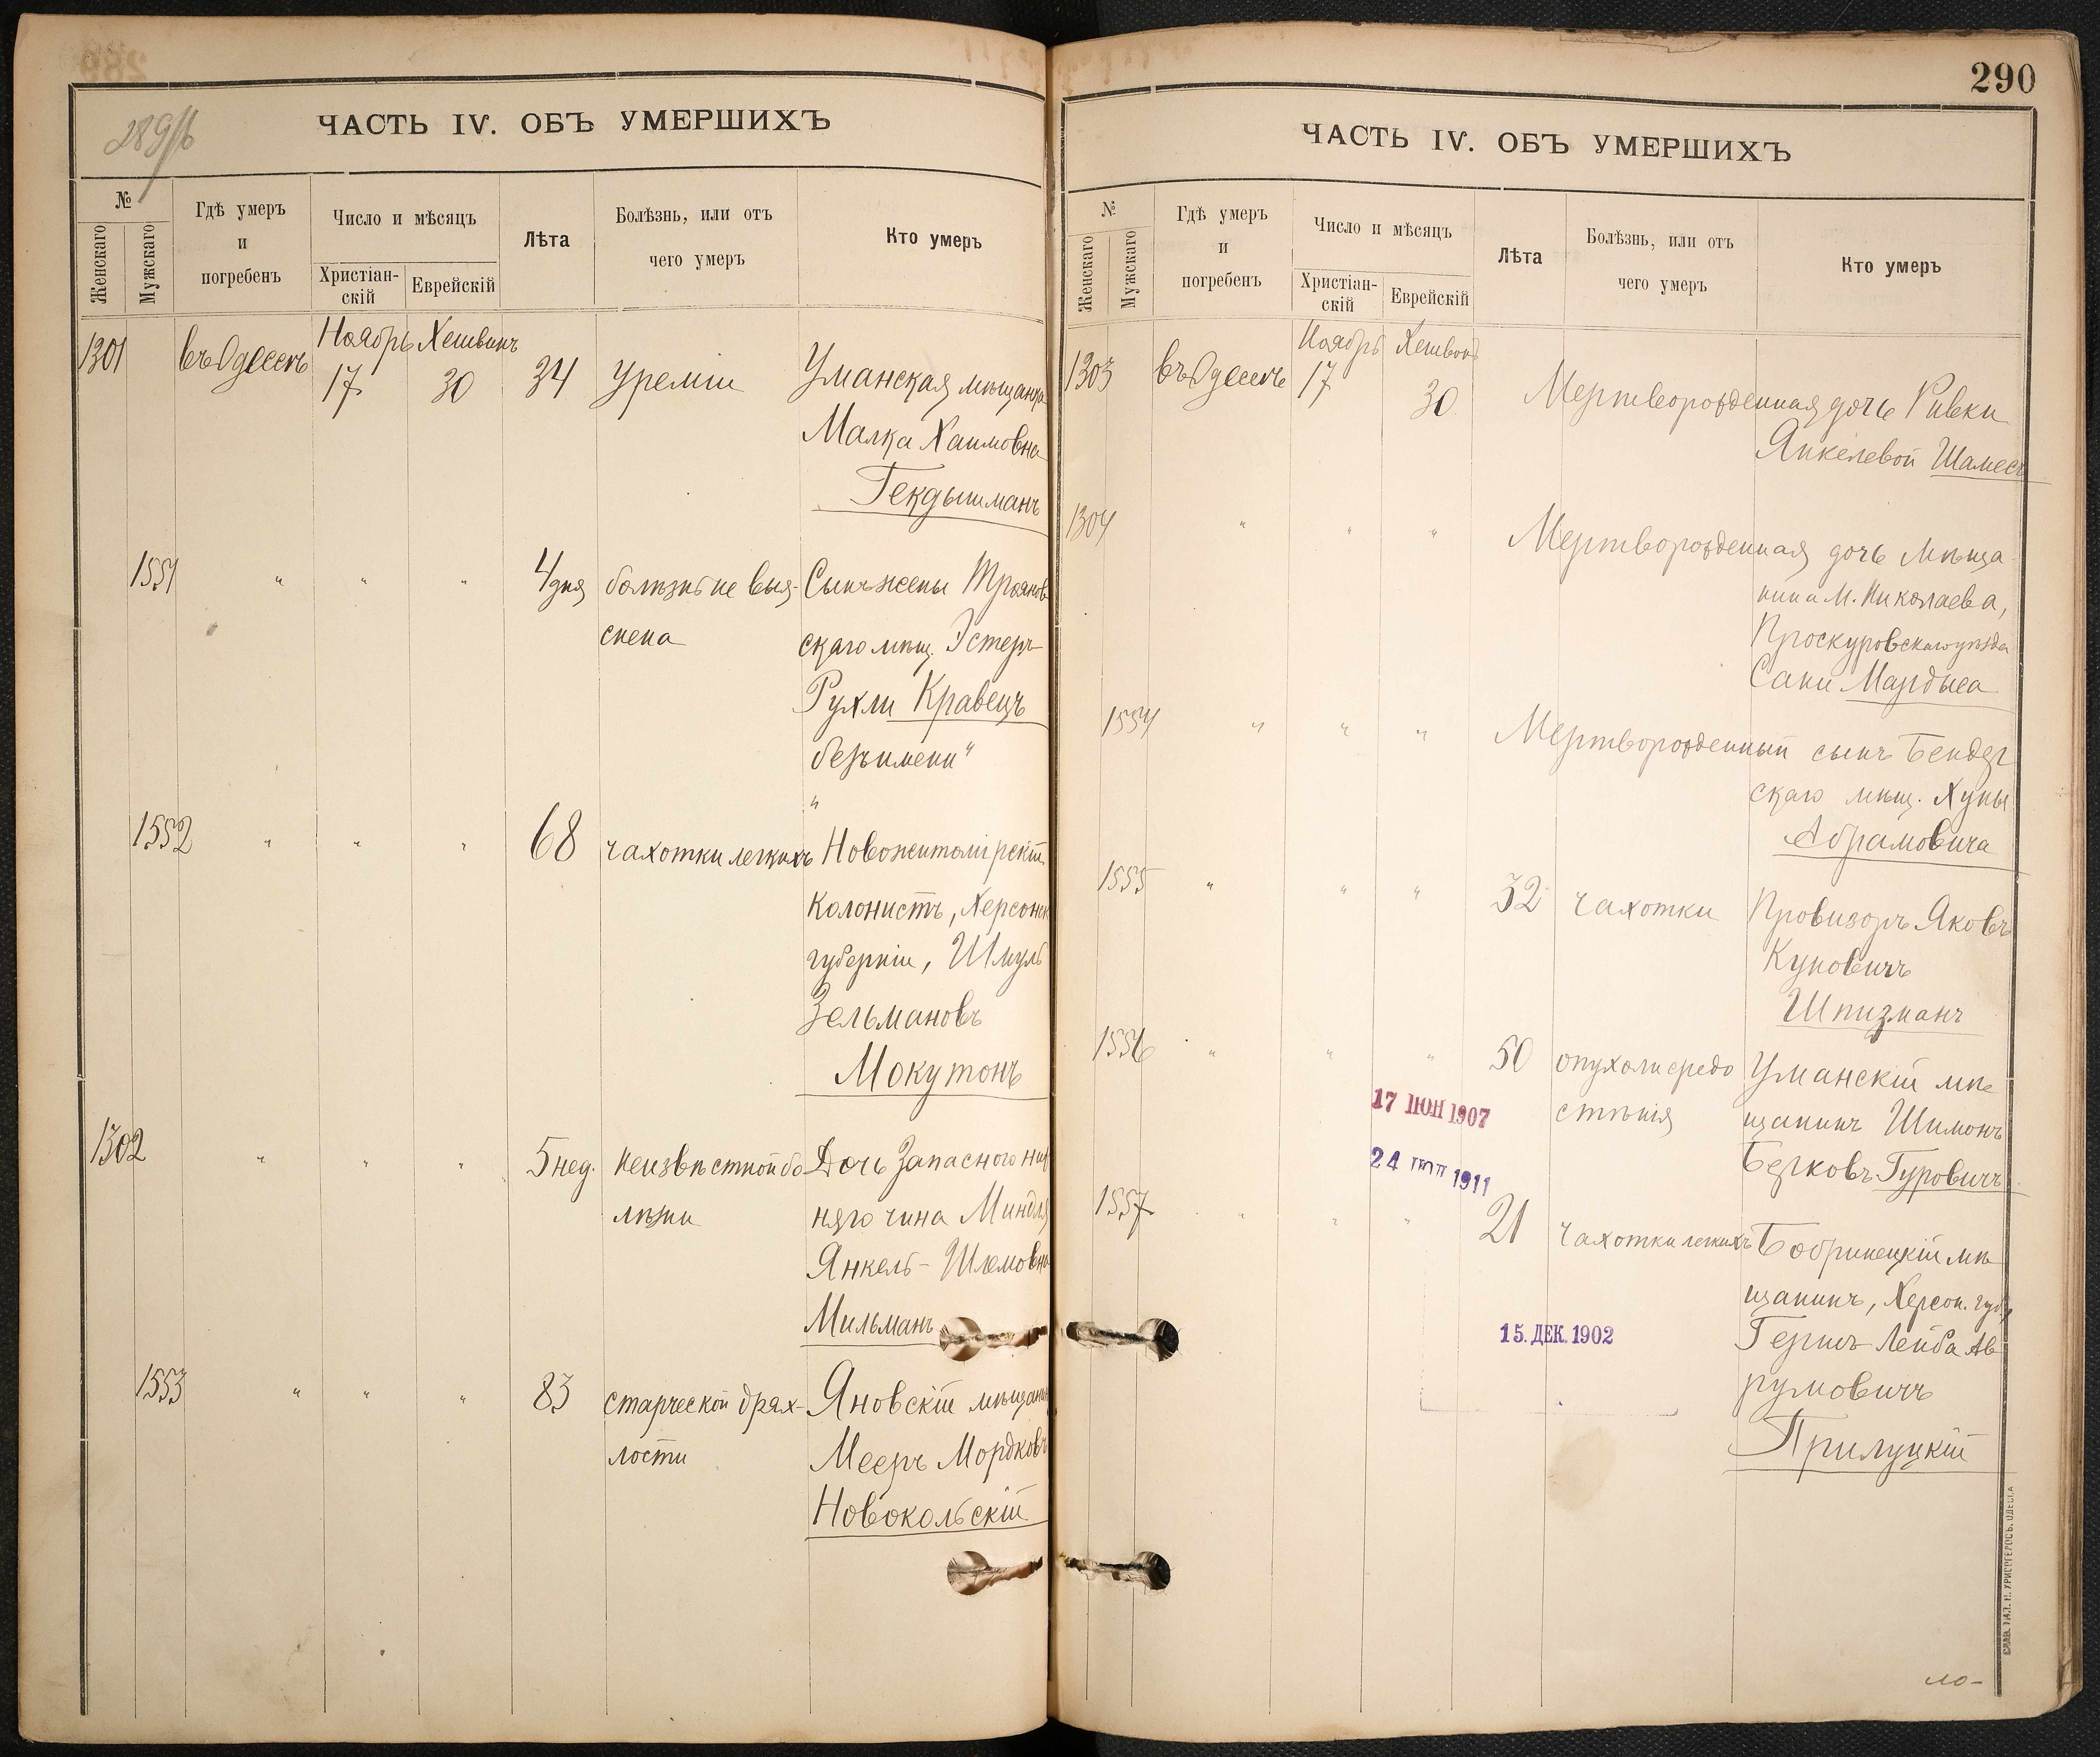 289/б
ЧАСТЬ IV. ОБЪ УМЕРШИХЪ
№
Женскаго
Мужскаго
Гдѣ умеръ
и
погребенъ
Число и мѣсяцъ
Христіан-
скій
Еврейскій
Лѣта
Болѣзнь, или отъ
чего умеръ
Кто умеръ
Ноябрь Хешванъ
1301 въ Одессѣ 17 30 34 Уреміи Уманская мѣщанка
Малка Хаимовна
Гекдышманъ
1551 " " " 4 дня болѣзнь не выя- Сынъ жены Трояновъ
снена скаго мѣщ. Эстеръ
Рухли Кравецъ
безъ имени"
"
1552 " " " 68 чахотки легкихъ Новожитомірскій
колонистъ, Херсонск
губерніи, Шмуль
Зельмановъ
Мокутонъ
1302 " " " 5 нед. неизвѣстной бо Дочь Запасного ниж
лѣзни няго чина Миндля
Янкель-Шлемовна
Мильманъ
1553 " " " 83 старческой дрях- Яновскій мѣщанинъ
лости Мееръ Мордковъ
Новокольскій
290
ЧАСТЬ IV. ОБЪ УМЕРШИХЪ
№
Женскаго
Мужскаго
Гдѣ умеръ
и
погребенъ
Число и мѣсяцъ
Христіан-
скій
Еврейскій
Лѣта
Болѣзнь, или отъ
чего умеръ
Кто умеръ
Ноябрь Хешванъ
1303 въ Одессѣ 17 30 Мертворожденная дочь Ривки
Янкелевой Шамесъ
1304 " " " Мертворожденная дочь мѣща
нина М. Николаева,
Проскуровскаго уѣзда
Сани Мардыса
1554 " " " Мертворожденный сынъ Бендер
скаго мѣщ. Хуны
Абрамовича
1555 " " " 32 чахотки Провизоръ Яковъ
Куновичъ
Шпизманъ
1556 " " " 50 опухоли средо Уманскій мѣ
стѣнія щанинъ Шимонъ
Берковъ Гуровичъ
17 ІЮН 1907
24 1911
1557 " " " 21 чахотки легкихъ Бобринецкій мѣ
щанинъ, Херсон. губ,
Гершъ Лейба Ав
румовичъ
Прилуцкій
15. ДЕК. 1902